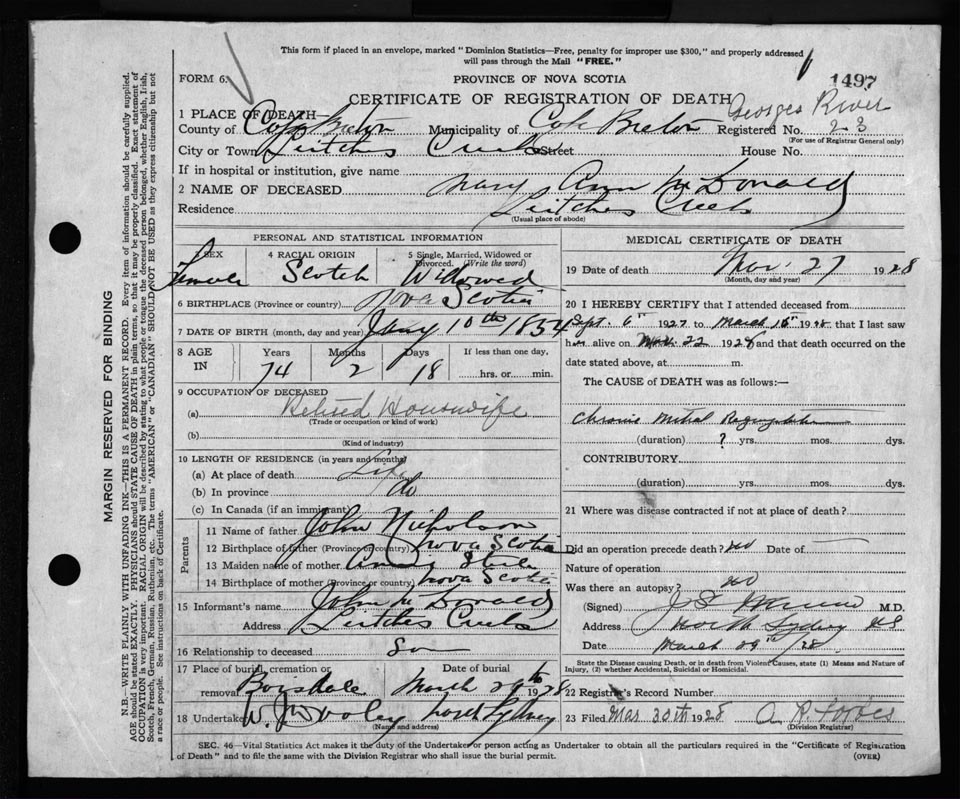 This form if placed in an envelope, marked "Dominion Statistics—Free, penalty for improper use $300," and properly addressed
will pass through the Mail "FREE."
FORM 6.
PROVINCE OF NOVA SCOTIA
1497
CERTIFICATE OF REGISTRATION OF DEATH
Georges River
1 PLACE OF DEATH—
County of Cape Breton Municipality of Cape Breton Registered No. 23
(For use of Registrar General only)
City or Town Leitches Creek Street House No.
If in hospital or institution, give name
2 NAME OF DECEASED Mary Ann McDonald
Residence Leitches Creek
(Usual place of abode)
PERSONAL AND STATISTICAL INFORMATION
3 SEX 4 RACIAL ORIGIN 5 Single, Married, Widowed or Divorced. (Write the word)
Female Scotch Widowed
6 BIRTHPLACE (Province or country) Nova Scotia
7 DATE OF BIRTH (month, day and year) Jany 10th 1854
8 AGE IN Years Months Days If less than one day,
74 2 18 hrs. or min.
9 OCCUPATION OF DECEASED
(a) Retired Housewife
(Trade or occupation or kind of work)
(b)
(Kind of industry)
10 LENGTH OF RESIDENCE (in years and months)
(a) At place of death Life
(b) In province do
(c) In Canada (if an immigrant)
Parents
11 Name of father John Nicholson
12 Birthplace of father (Province or country) Nova Scotia
13 Maiden name of mother
14 Birthplace of mother (Province or country) Nova Scotia
15 Informant's name John McDonald
Address Leitches Creek
16 Relationship to deceased Son
17 Place of burial, cremation or removal Boisdale Date of burial March 29th 1928
18 Undertaker W. J. Dooley North Sydney
(Name and address)
MEDICAL CERTIFICATE OF DEATH
19 Date of death 27 1928
(Month, day and year)
20 I HEREBY CERTIFY that I attended deceased from
Sept. 6th 1927 to March 1928 that I last saw
her alive on 22 1928 and that death occurred on
date stated above, at m.
The CAUSE of DEATH was as follows:—
Chronic Mitral Regurgitation
(duration) ? yrs. mos. dys.
CONTRIBUTORY
(duration) yrs. mos. dys.
21 Where was disease contracted if not at place of death?
Did an operation precede death? no Date of
Nature of operation
Was there an autopsy? no
(Signed) M.D.
Address North Sydney NS
Date March 29th/28
State the Disease causing Death, or in death from Violent Causes, state (1) Means and Nature of
Injury, (2) whether Accidental, Suicidal or Homicidal.
22 Registrar's Record Number
23 Filed Mar 30th 1928
(Division Registrar)
SEC. 46—Vital Statistics Act makes it the duty of the Undertaker or person acting as Undertaker to obtain all the particulars required in the "Certificate of Registration
of Death" and to file the same with the Division Registrar who shall issue the burial permit.
(OVER)
MARGIN RESERVED FOR BINDING
N.B.—WRITE PLAINLY WITH UNFADING INK—THIS IS A PERMANENT RECORD. Every item of information should be carefully supplied.
AGE should be stated EXACTLY. PHYSICIANS should STATE CAUSE OF DEATH in plain terms, so that it may be properly classified. Exact statement of
OCCUPATION is very important. RACIAL ORIGIN will be described by stating to what people or tongue the deceased person belonged, whether English, Irish,
Scotch, French, German, Russian, Ruthenian, etc. The terms "AMERICAN" or "CANADIAN" SHOULD NOT BE USED as they express citizenship but not
a race or people. See instructions on back of Certificate.